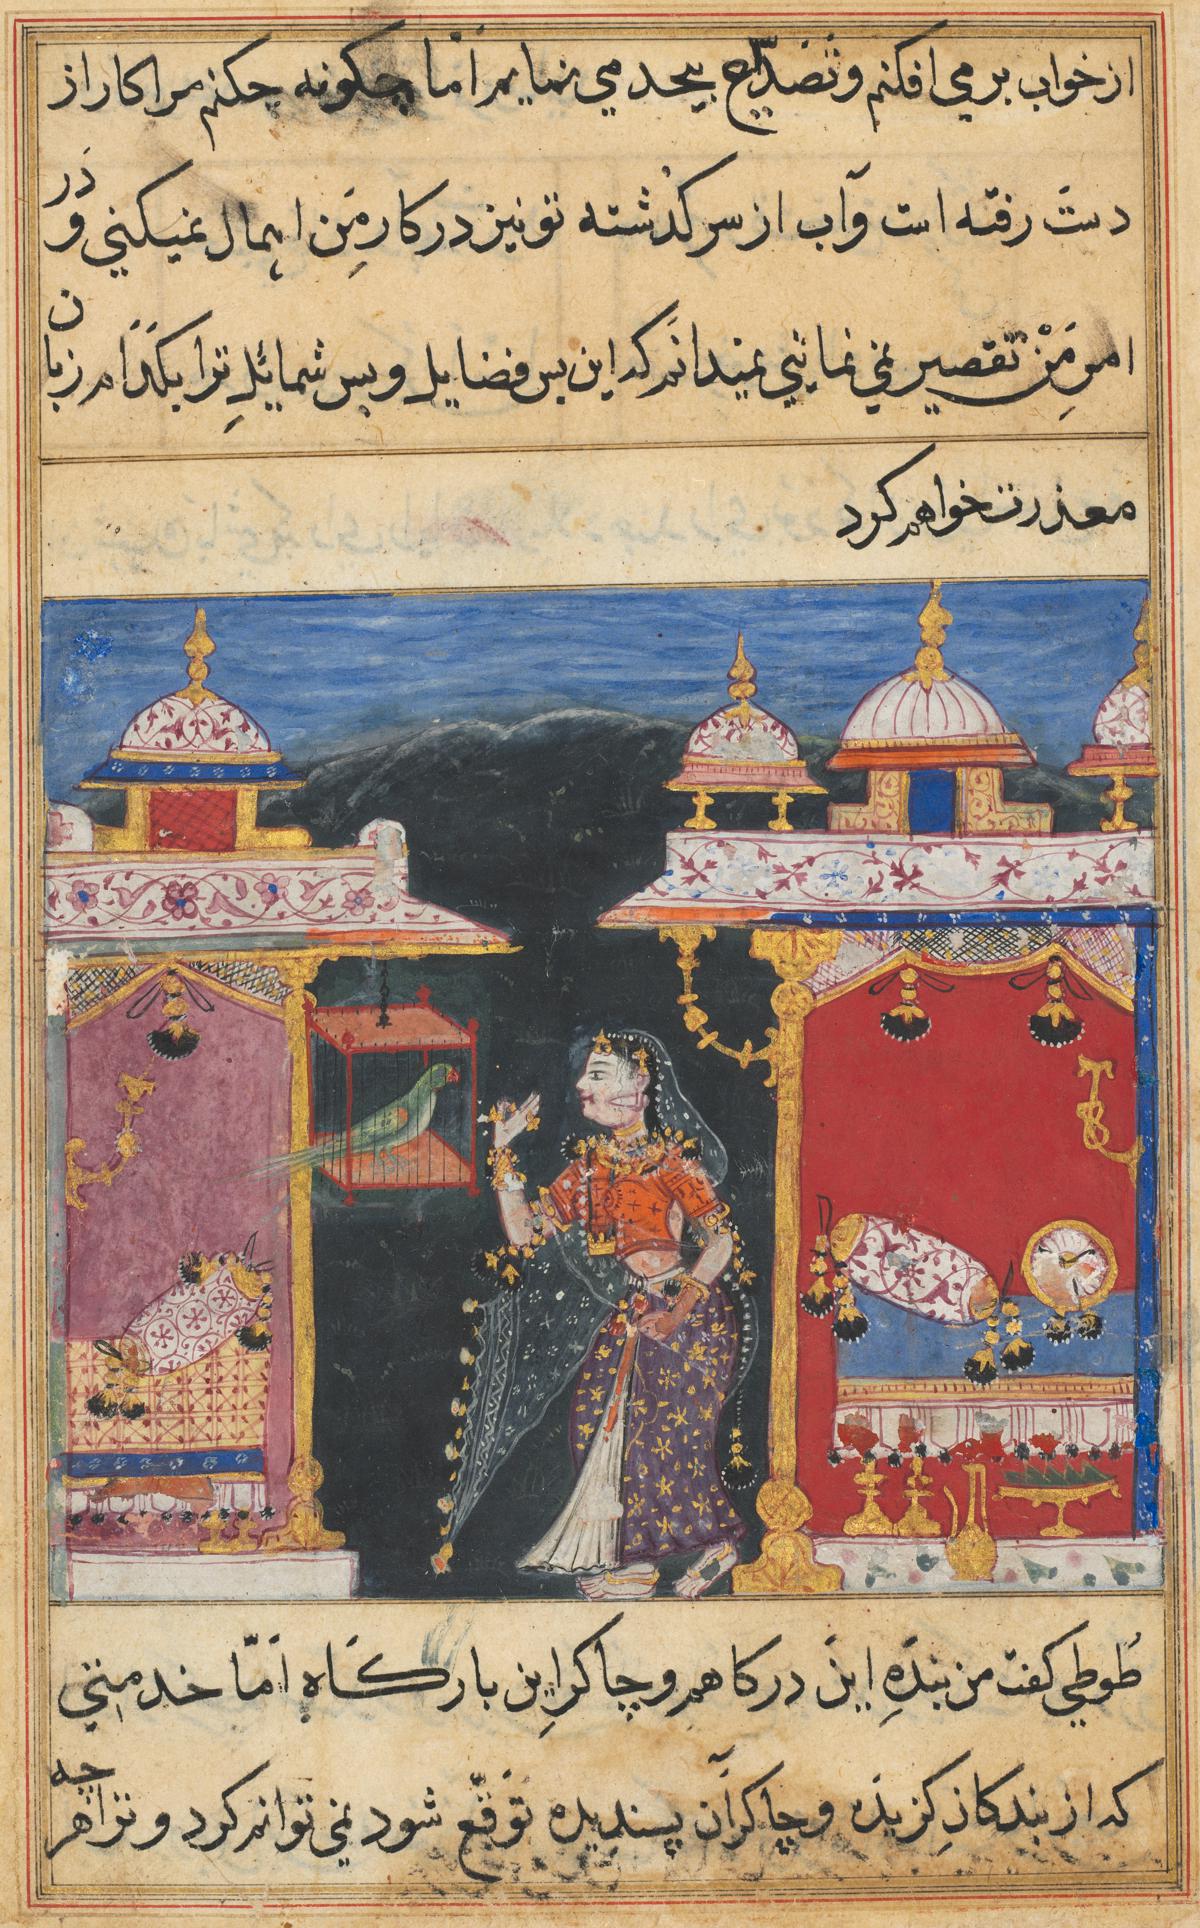 از خواب بر می افکنم و تَصَدّاع بیحد می نمایم اَما چکونه چکنم مرا کار از
دستَ رفته است وَآب از سر کذشته تو نیز در کار مَنِ اهمال نمیکنی و دَر
امرِ مَنْ تَقصیر نمی نمائی نمیدانَم که این بس فضایل و بس شمائلِ ترا بکدَام زبان
معذرت خواهم کرد
طُوطی کفت من بندَهِ اینَ درکاهم و چاکرِ این بارکَاه اَمّا خدمتی
که از بندکانِ کزیدَه و چاکرَان پسندیده تَوقّع شود نمی توانم کرد و ترا هر چه